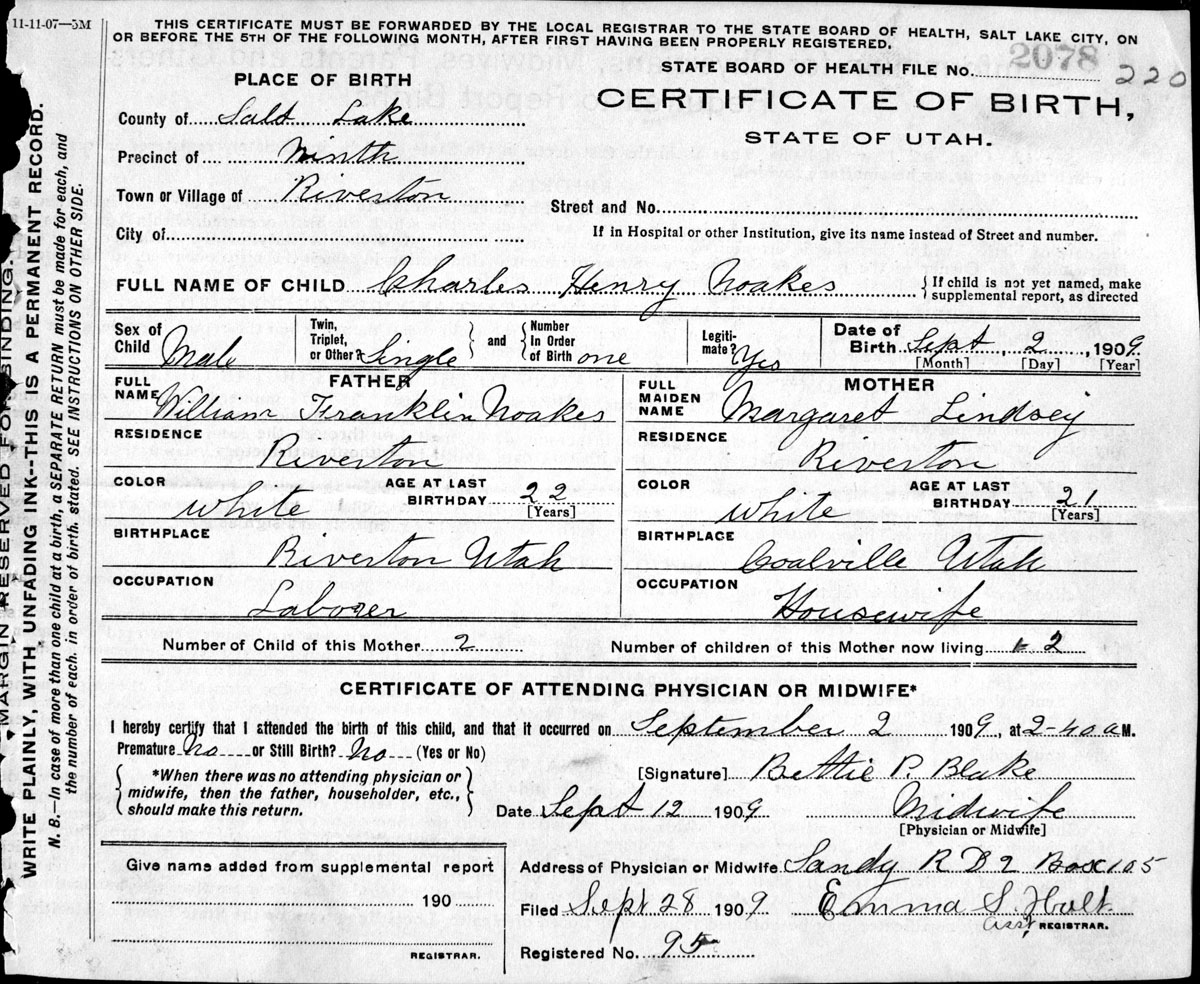 11-11-07—5M
THIS CERTIFICATE MUST BE FORWARDED BY THE LOCAL REGISTRAR TO THE STATE BOARD OF HEALTH, SALT LAKE CITY, ON
OR BEFORE THE 5TH OF THE FOLLOWING MONTH, AFTER FIRST HAVING BEEN PROPERLY REGISTERED.
STATE BOARD OF HEALTH FILE No. 2078 220
CERTIFICATE OF BIRTH,
STATE OF UTAH.
PLACE OF BIRTH
County of Salt Lake
Precinct of Ninth
Town or Village of Riverton
Street and No.
City of
If in Hospital or other Institution, give its name instead of Street and number.
FULL NAME OF CHILD Charles Henry Noakes
If child is not yet named, make
supplemental report, as directed
Sex of Child Male
Twin, Triplet, or Other? Single
and Number In Order of Birth one
Legiti-mate? Yes
Date of Birth Sept, 2, 1909.
[Month] [Day] [Year]
FATHER
FULL NAME William Franklin Noakes
RESIDENCE
Riverton
COLOR White
AGE AT LAST BIRTHDAY 22
[Years]
BIRTHPLACE
Riverton Utah
OCCUPATION
Laborer
MOTHER
FULL MAIDEN NAME Margaret Lindsey
RESIDENCE
Riverton
COLOR White
AGE AT LAST BIRTHDAY 21
[Years]
BIRTHPLACE
Coalville Utah
OCCUPATION
Housewife
Number of Child of this Mother 2
Number of children of this Mother now living 2
CERTIFICATE OF ATTENDING PHYSICIAN OR MIDWIFE*
I hereby certify that I attended the birth of this child, and that it occurred on September 2 1909, at 2-40 a M.
Premature No or Still Birth? No (Yes or No)
*When there was no attending physician or
midwife, then the father, householder, etc.,
should make this return.
[Signature] Bettie P. Blake
Date Sept 12 1909 Midwife
[Physician or Midwife]
Give name added from supplemental report
190
REGISTRAR.
Address of Physician or Midwife Sandy R D 2 Box 105
Filed Sept 28 1909 Emma S. Holt
asst REGISTRAR.
Registered No. 95
MARGIN RESERVED FOR BINDING.
WRITE PLAINLY, WITH UNFADING INK--THIS IS A PERMANENT RECORD.
N. B.—In case of more than one child at a birth, a SEPARATE RETURN must be made for each, and
the number of each, in order of birth, stated. SEE INSTRUCTIONS ON OTHER SIDE.